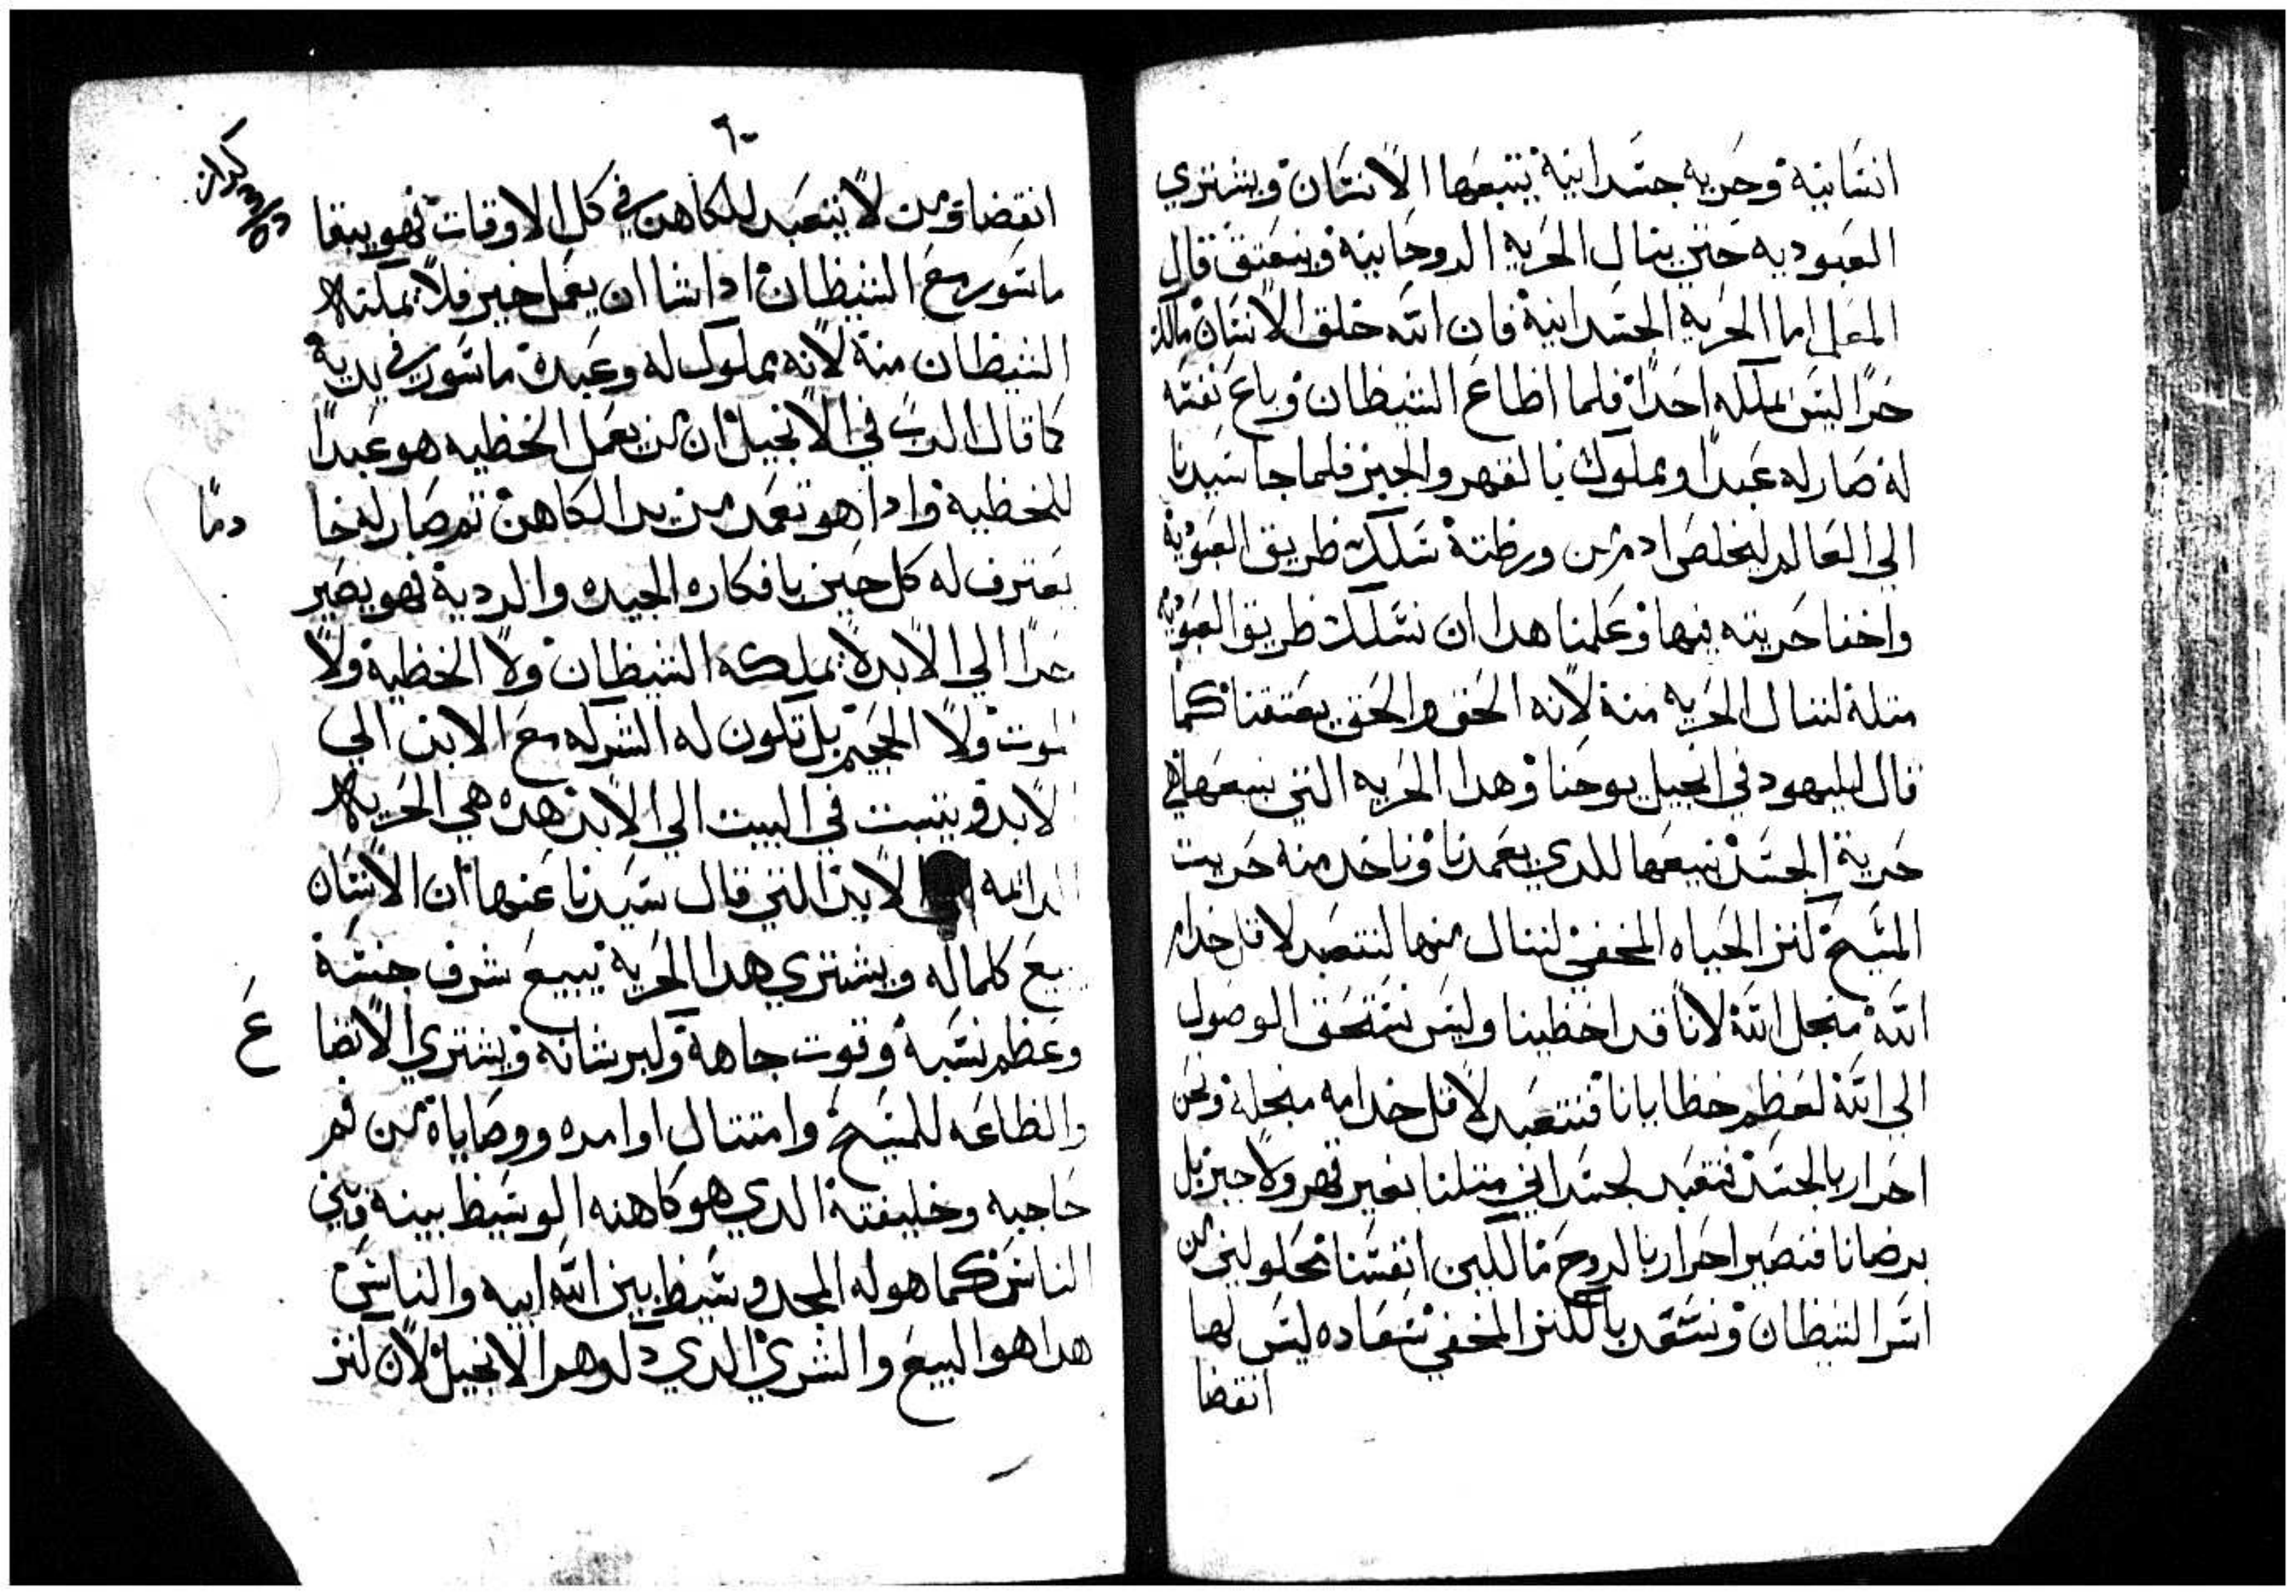 انسانية وحرية جسدانية يتبعها الانسان ويشتري
العبوديه حتي ينال الحريه الروحانية وينعتق قال
المعلم اما الحريه الجسدانية فان الله خلق الانسان مالك
حرًا ليس يملكه احدًا فلما اطاع الشيطان وباع نفسه
له صار له عبدًا ومملوك بالقهر والجبر فلما جا سيدنا
الي العالم ليخلص ادم من ورطته سلك طريق العبودية
واخفا حريته فيها وعلمنا هدا ان نسلك طريق العبودية
متله لننال الحريه منه لانه الحق والحق يعتقنا كما
قال لليهود في انجيل يوحنا وهدا الحريه التي نبيعها هي
حرية الجسد نبيعها للدي يعمدنا وناخد منه حريت
المسيح كنز الحياه المخفي لننال منها لنتعبد لاقل خدام
الله من اجل الله لانا قد اخطينا وليس نستحق الوصول
الي الله لعظم خطايانا فنتعبد لاقل خدامه من اجله ونحن
احرار بالجسد فنتعبد لجسداني متلنا بغير قهر ولا جبر بل
برضانا فنصير احرار بالروح مالكين انفسنا محلولين من
اسر الشيطان ونسعد بالكنز المخفي سعاده ليس لها
انقضا
٦٠
كراز
انقضا ومن لا يتعبد للكاهن في كل الاوقات فهو يبقا
ماسور مع الشيطان ادا شا ان يعمل خير فلا يمكنه
الشيطان منه لانه مملوك له وعبده ماسور في يديه
كما قال الرب في الانجيل ان من يعمل الخطيه هو عبدًا
للخطية وادا هو تعمد من يد الكاهن تم صار له خا
دمًا
يعترف له كل حين بافكاره الجيده والردية فهو يصير
حرًا الي الابد لا يملكه الشيطان ولا الخطية ولا
الموت ولا الجحيم بل تكون له الشركه مع الابن الي
الابد ويتبت في البيت الي الابد هده هي الحريه
الدايمه الي الابد التي قال سيدنا عنها ان الانسان
يبيع كلما له ويشتري هدا الحرية يبيع شرف جنسة
وعظم نسبة وقوت جاهة وكبر شانه ويشتري الاتضا
ع
والطاعه للمسيح وامتتال اوامره ووصاياة من فم
حاجبه وخليفتة الدي هو كاهنه الوسيط بينه وبين
الناس كما هو له المجد وسيط بين الله ابيه والناس
هدا هو البيع والشري الدي دكره هدا الانجيل لان كنز